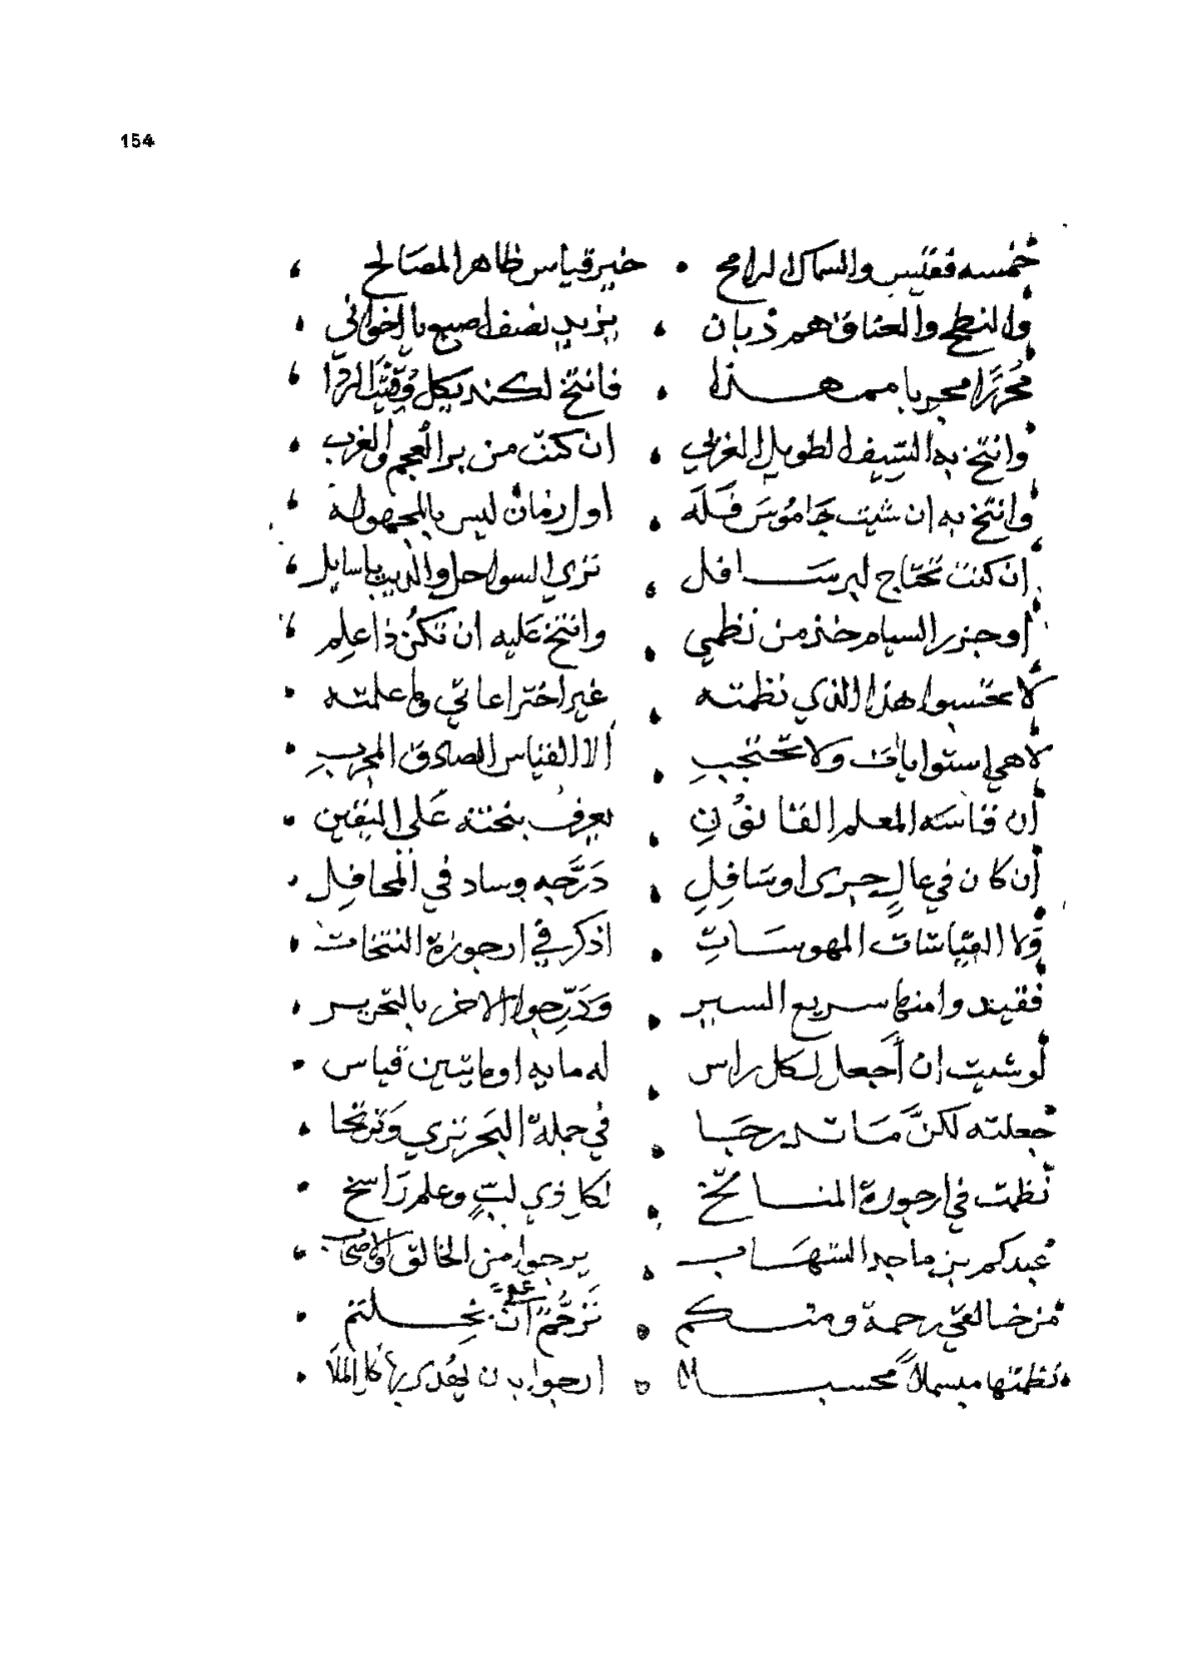 154
خمسه فقيس والسماك الرامح • خير قياس ظاهر المصالح
والنطح والعناق هم ذبان • يزيد نصف اصبع يا اخواني
محررا مجربا مع هذا • فانتخ لكنه بكل
وانتخ به السيف الطويل الغربي • ان كنت من بر العجم والغرب
وانتخ به ان شيت جاموس فله • اول زمان ليس بالمجهوله
ان كنت تحتاج لبر سافل • ترى السواحل والديب يا سايل
او جزر السيام خذ من نظمي • وانتخ عليه ان تكن ذا علم
لا تحسبوا هذا الذي نظمته • غير اختراعاتي وما علمته
لا هي استوايات ولا تحتجب • الا القياس الصادق المجرب
ان قاسه المعلم القانون • يعرف بنختة على اليقين
ان كان في عال جرى او سافل • درجه وساد في المحافل
ولا القياسات المهوسات • اذكر في ارجوزة النتخات
فقيد وامنها سريع السير • ودرجوا الاخر بالتحرير
لو شيت ان اجعل لكل راس • له مايه او مايتين قياس
جعلته لكن ما تدرجبا • في جملة البحر ترى وترتجا
نظمت في ارجوزة المناتخ • لكل ذي لب وعلم راسخ
عبدكم بن ماجد الشهاب • يرجوا من الخالق والاصحاب
من خالقي رحمة ومنكم • ترحم ان عني نخلتم
نظمتها مبسملا محسبلا • ارجوا بان يهدى بها كل الملا